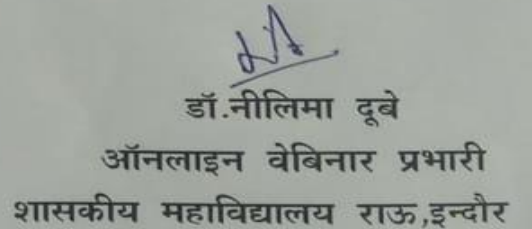 डॉ.नीलिमा दूबे
ऑनलाइन वेबिनार प्रभारी
शासकीय महाविद्यालय राऊ,इन्दौर